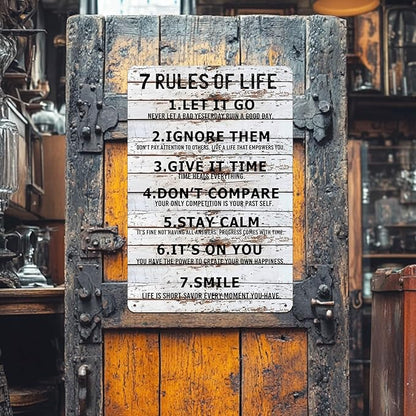 7 RULES OF LIFE
1.LET IT GO
NEVER LET A BAD YESTERDAY RUIN A GOOD DAY.
2.IGNORE THEM
DON'T PAY ATTENTION TO OTHERS. LIVE A LIFE THAT EMPOWERS YOU.
3.GIVE IT TIME
TIME HEALS EVERYTHING.
4.DON'T COMPARE
YOUR ONLY COMPETITION IS YOUR PAST SELF.
5.STAY CALM
IT'S FINE NOT HAVING ALL ANSWERS. PROGRESS COMES WITH TIME.
6.IT'S ON YOU
YOU HAVE THE POWER TO CREATE YOUR OWN HAPPINESS.
7.SMILE
LIFE IS SHORT. SAVOR EVERY MOMENT YOU HAVE.